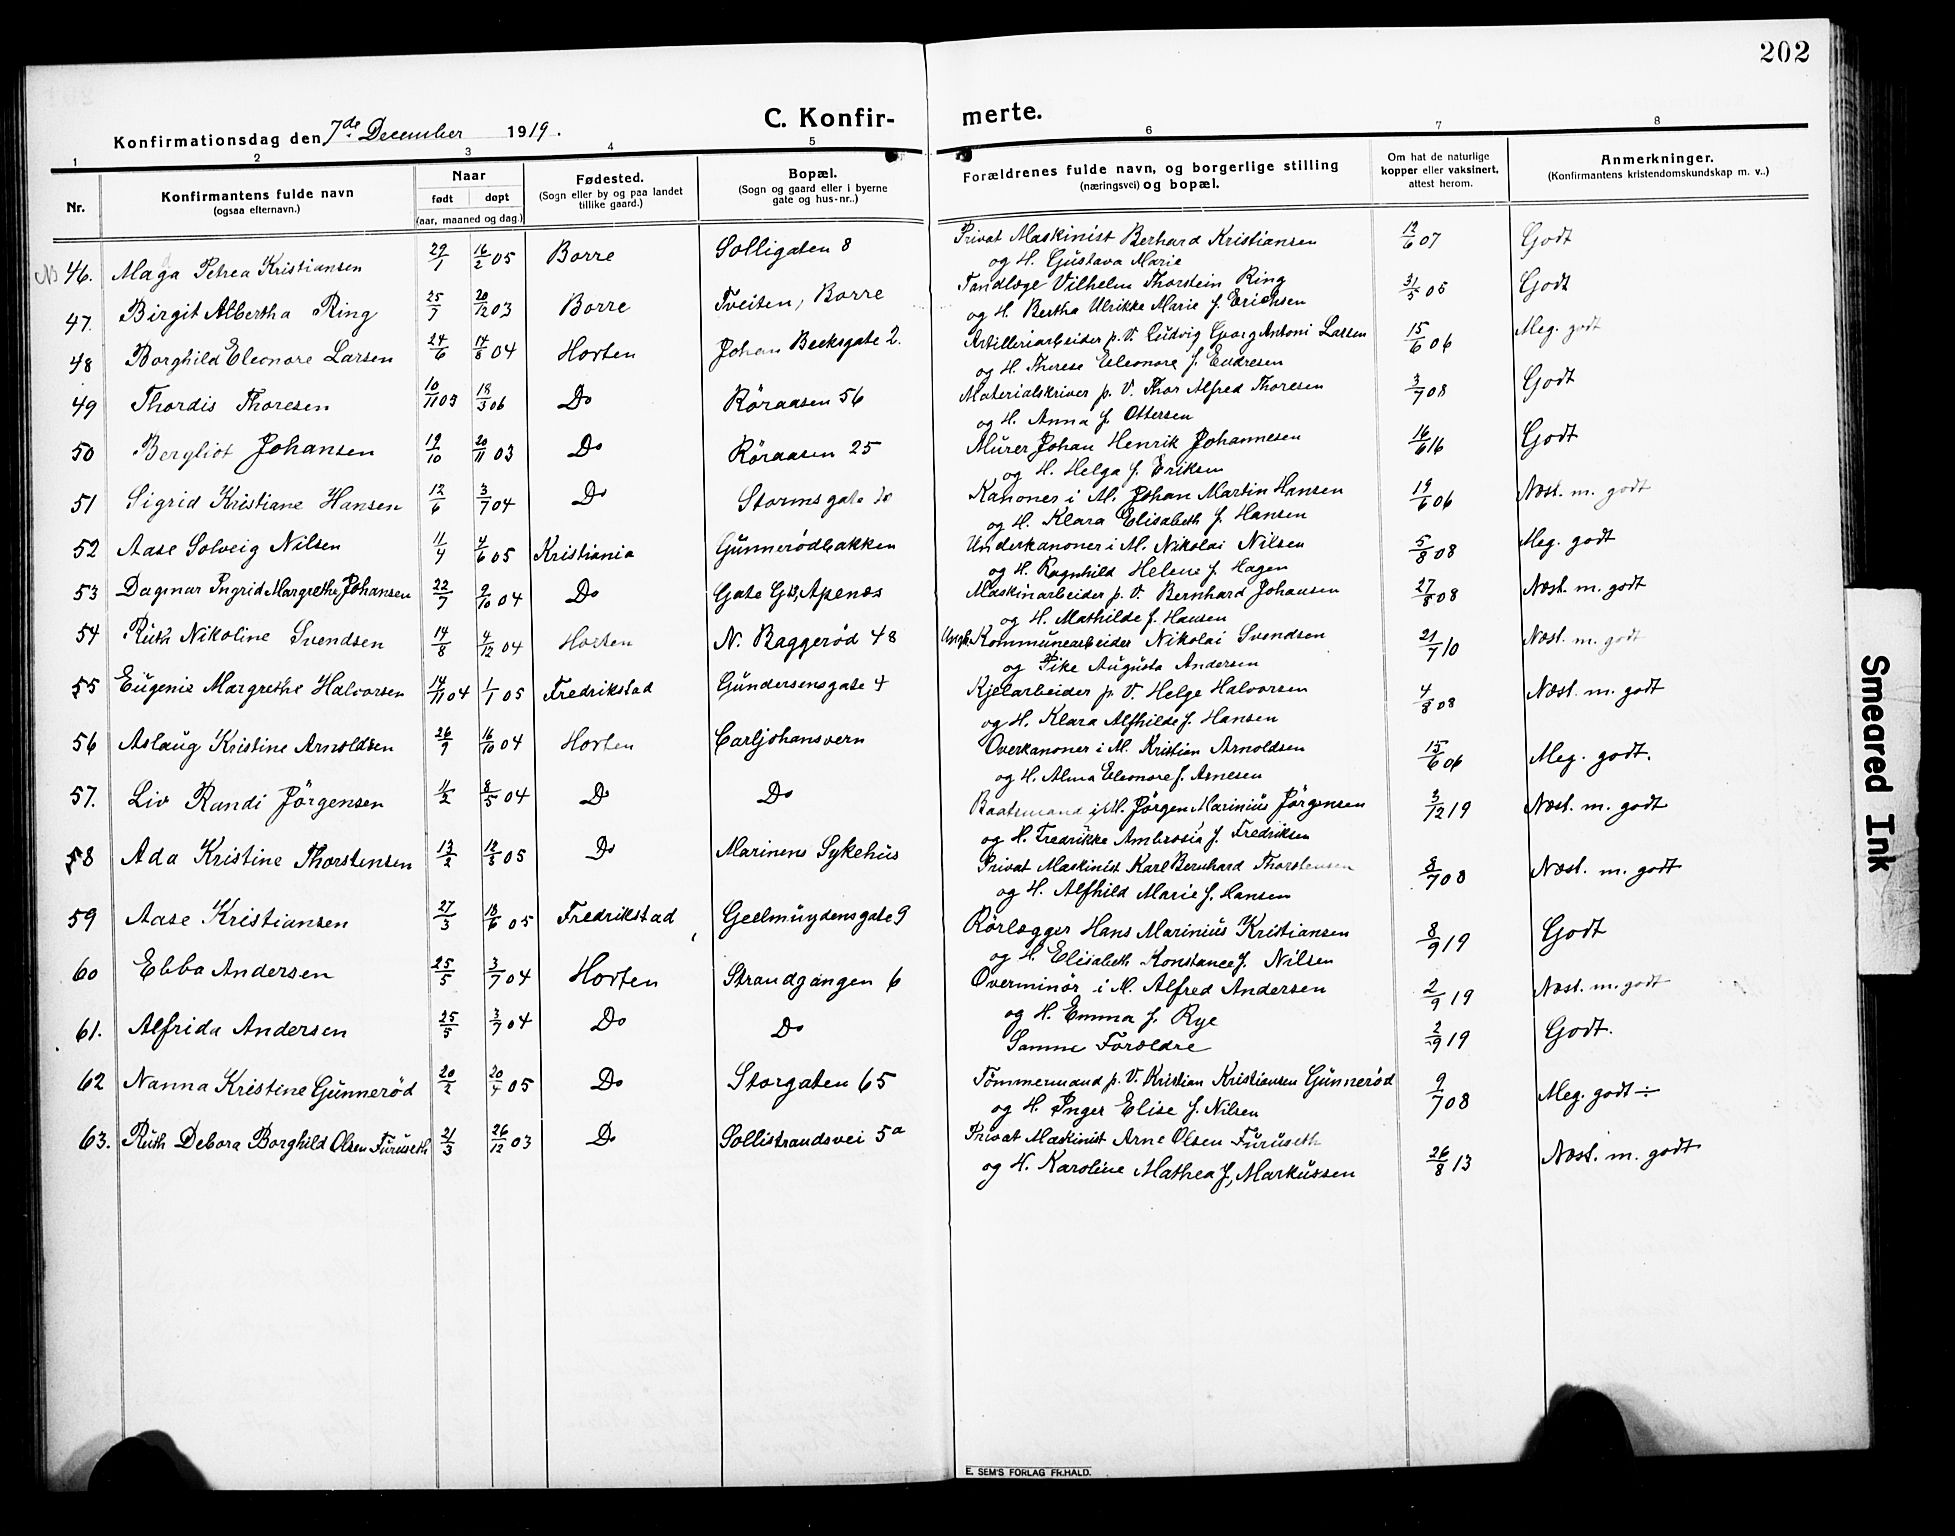 202
C. Konfirmerte.
Konfirmationsdag den 7de December 1919.
1 2 3 4 5 6 7 8
Nr.
Konfirmantens fulde navn
(ogsaa efternavn.)
Naar
født døpt
(aar, maaned og dag.)
Fødested.
(Sogn eller by og paa landet
tillike gaard.)
Bopæl.
(Sogn og gaard eller i byerne
gate og hus-nr..)
Forældrenes fulde navn, og borgerlige stilling
(næringsvei) og bopæl.
Om hat de naturlige
kopper eller vaksinert,
attest herom.
Anmerkninger.
(Konfirmantens kristendomskundskap m. v..)
46. Maga Petrea Kristiansen 29/1 16/2 05 Borre Solligaten 8 Privat Maskinist Berhard Kristiansen 12/6 07 Godt
og H. Gustava Marie
47. Birgit Albertha Ring 25/7 20/12 03 Borre Tveiten, Borre Tandlæge Vilhelm Thorstein Ring 31/5 05 Godt
og H. Bertha Ulrikke Marie f. Erichsen
48 Borghild Eleonore Larsen 24/6 14/8 04 Horten Johan Becksgate 2. Artilleriarbeider p. V. Ludvig Georg Antoni Larsen 15/6 06 Meg. godt
og H. Therese Eleonore f. Endresen
49 Thordis Thoresen 10/11 03 18/3 06 Do Röraasen 56 Materialskriver p. V. Thor Alfred Thoresen 3/7 08 Godt
og H. Anna f. Ottersen
50 Bergliot Johansen 19/10 20/11 03 Do Röraasen 25 Murer Johan Henrik Johannesen 16/6 16 Godt
og H. Helga f. Eriksen
51 Sigrid Kristiane Hansen 12/6 3/7 04 Do Stormsgate Kanoner i M. Johan Martin Hansen 19/6 06 Næst. m. godt
og H. Klara Elisabeth f. Hansen
52 Aase Solveig Nilsen 11/4 4/6 05 Kristiania Gunnerödbakken Underkanoner i M. Nikolai Nilsen 5/8 08 Meg. godt
og H. Ragnhild Helene f. Hagen
53 Dagmar Ingrid Margrethe Johansen 22/7 9/10 04 Do Gate Apenæs Maskinarbeider p. V. Bernhard Johansen 27/8 08 Næst. m. godt
og H. Mathilde f. Hansen
54 Ruth Nikoline Svendsen 14/8 4/12 04 Horten N. Baggerød 48 Kommunearbeider Nikolai Svendsen 21/7 10 Næst. m. godt
og Pike Augusta Andersen
55 Eugenie Margrethe Halvorsen 14/11 04 1/1 05 Fredrikstad Gundersensgate 4 Kjelarbeider p. V. Helge Halvorsen 4/8 08 Næst. m. godt
og H. Klara Alfhilde f. Hansen
56 Aslaug Kristine Arnoldsen 26/9 16/10 04 Horten Carljohansvern Overkanoner i M. Kristian Arnoldsen 15/6 06 Meg. godt.
og H. Alma Eleonore f. Arnesen
57. Liv Randi Jörgensen 11/2 8/5 04 Do Do Baatsmand i M. Jörgen Marinius Jörgensen 3/12 19 Næst. m. godt
og H. Fredrikke Ambrosia f. Fredriksen
58 Ada Kristine Thorstensen 13/2 12/3 05 Do Marinens Sykehus Privat Maskinist Karl Bernhard Thorstensen 8/7 08 Næst. m. godt
og H. Alfhild Marie f. Hansen
59 Aase Kristiansen 27/3 18/6 05 Fredrikstad Geelmuydensgate 9 Rörlægger Hans Marinius Kristiansen 8/9 19 Godt
og H. Elisabeth Konstance f. Nilsen
60 Ebba Andersen 25/5 3/7 04 Horten Strandgangen 6 Overminör i M. Alfred Andersen 2/9 19 Næst. m. godt
og H. Emma f. Rye
61. Alfrida Andersen 25/5 3/7 04 Do Do Samme Foræeldre 2/9 19 Godt.
62 Nanna Kristine Gunnerød 20/2 20/4 05 Do Storgaten 65 Tömmermand p. V. Kristian Kristiansen Gunnerød 9/7 08 Meg. godt ÷
og H. Inger Elise f. Nilsen
63. Ruth Debora Borghild Olsen Furuseth 21/3 26/12 03 Do Sollistrandsvei 5a Privat Maskinist Arne Olsen Furuseth 26/8 13 Næst. m. godt
og H. Karoline Mathea f. Markussen
E. SEM'S FORLAG FR.HALD.
Smeared Ink